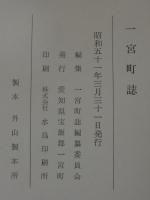 一宮町誌
昭和五十一年三月三十一日発行
編集 一宮町誌編纂委員会
発行 愛知県宝飯郡一宮町
印刷 株式会社 水鳥印刷所
製本 外山製本所